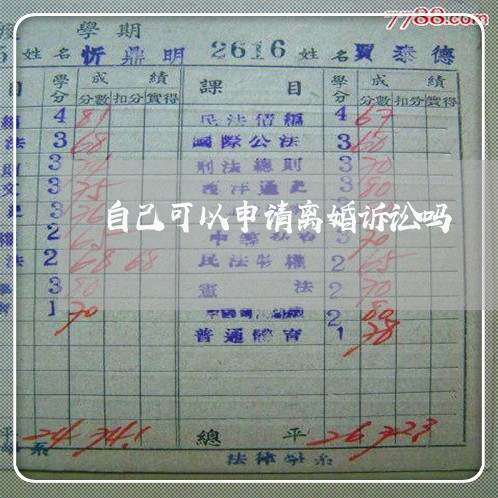 7788.com
學期
姓名 忻鼎明 2616 姓名 賈泰德
目 學分 成績 課目 學分 成績
分數 扣分 實得 分數 扣分 實得
4 81 民法債編 4 67
法 3 68 國際公法 3 60
則 3 刑法總則 3 70
3 75 西洋通史 3 80
3
自己可以申请离婚诉讼吗
2 65 3 70
法 2 68 68 民法物權 2 65
3 80 憲法 2 70
1 70 2 80
普通體育 1 78
平 24 74.1 總平 26 72.3
系 法律學系